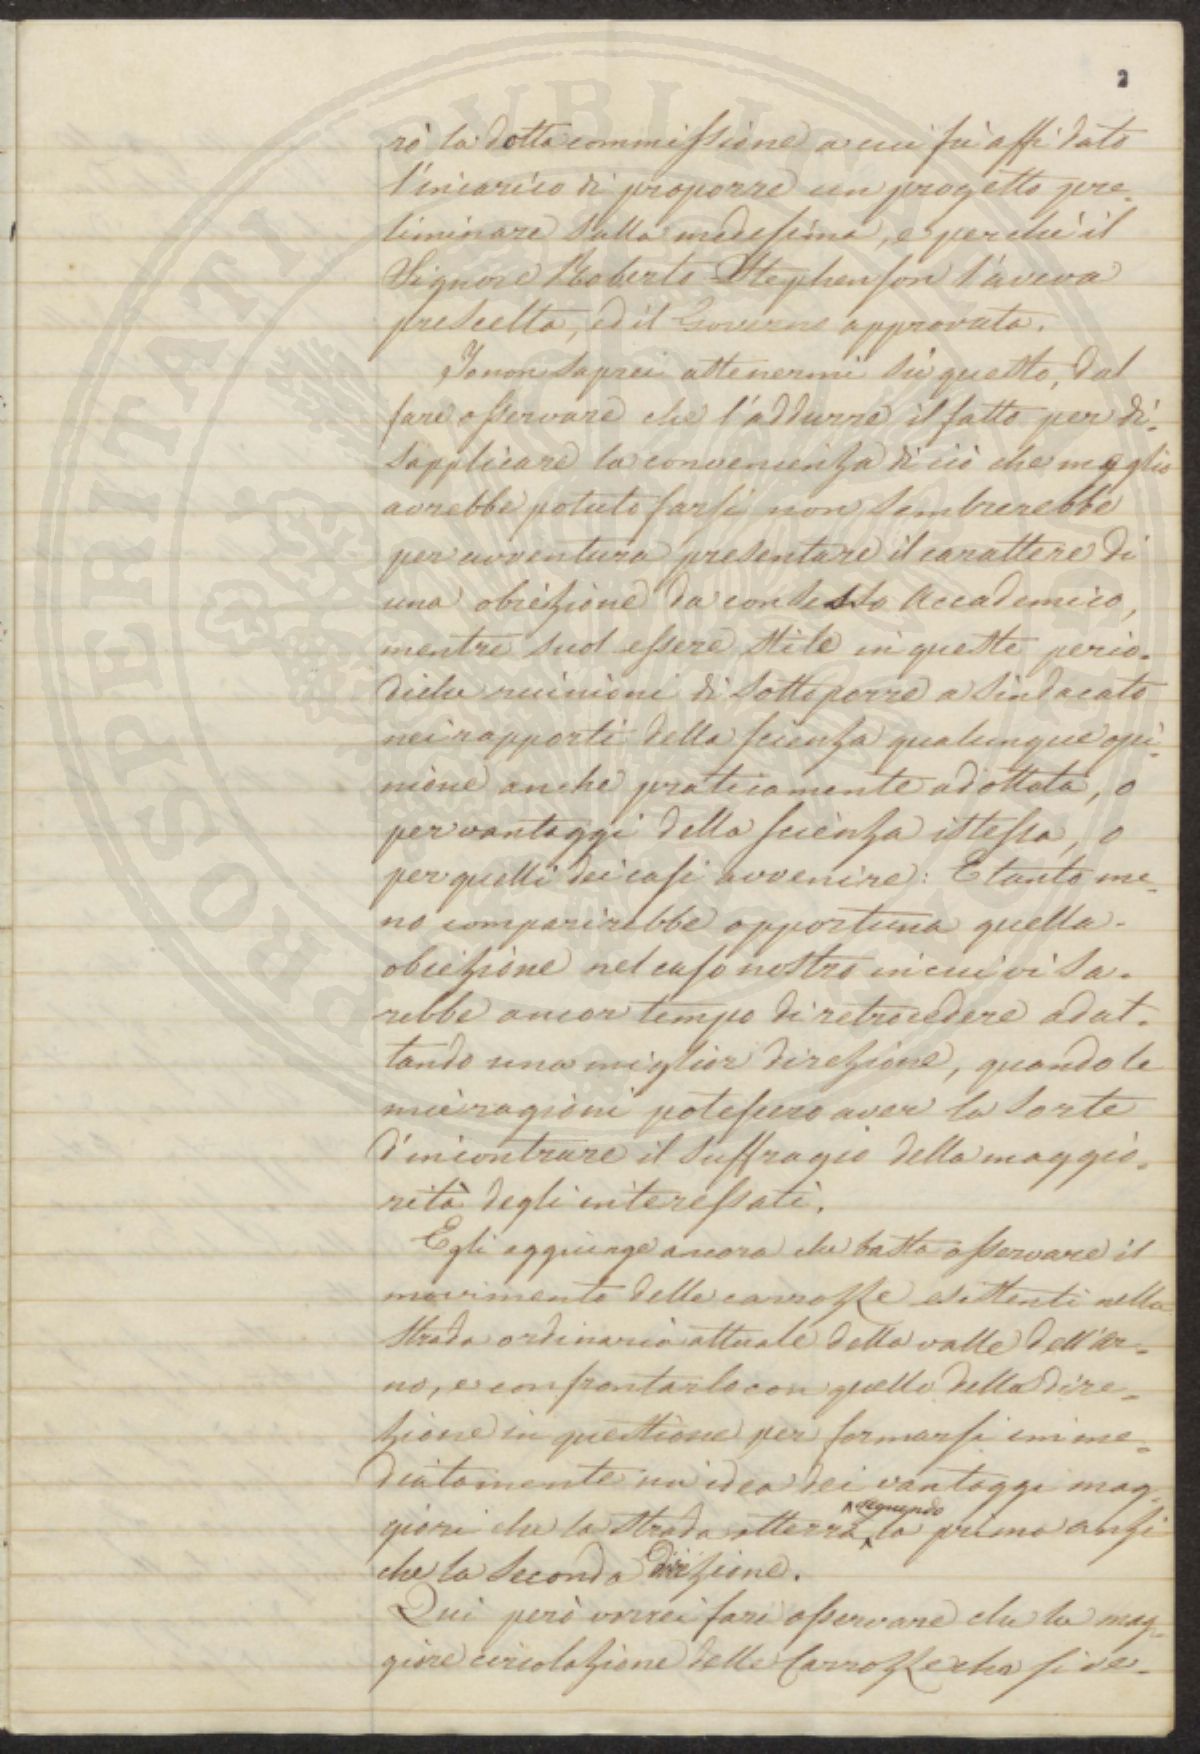 2
rò la dotta commissione a cui fù affidato
l'incarico di proporre un progetto pre-
liminare sulla medesima, e perchè il
Signore Roberto Stephenson l'aveva
prescelta, ed il Governo approvata.
Io non saprei attenermi sù questo, dal
fare osservare che l'addurre il fatto per di-
sapplicare la convenienza di ciò che meglio
avrebbe potuto farsi non sembrerebbe
per avventura presentare il carattere di
una obiezione da consesso Accademico,
mentre suol essere stile in queste perio-
diche riunioni di sottoporre a sindacato
nei rapporti della scienza qualunque opi-
nione anche praticamente adottata, o
per vantaggi della scienza istessa, o
per quelli dei casi avvenire: E tanto me-
no comparirebbe opportuna quella
obiezione nel caso nostro in cui vi sa-
rebbe ancor tempo di retrocedere adat-
tando una miglior direzione, quando le
mie ragioni potessero aver la sorte
d'incontrare il suffragio della maggio-
rità degli interessati.
Egli aggiunge ancora che basta osservare il
movimento delle carrozze esistenti nella
strada ordinaria attuale della valle dell'Ar-
no, e confrontarlo con quello della dire-
zione in questione per formarsi imme-
diatamente un'idea dei vantaggi mag-
giori che la strada otterrà seguendo la prima anzi
che la seconda direzione.
Qui però vorrei fare osservare che la mag-
giore circolazione delle Carrozze che si ve-
PROSPERITATI PUBLICAE